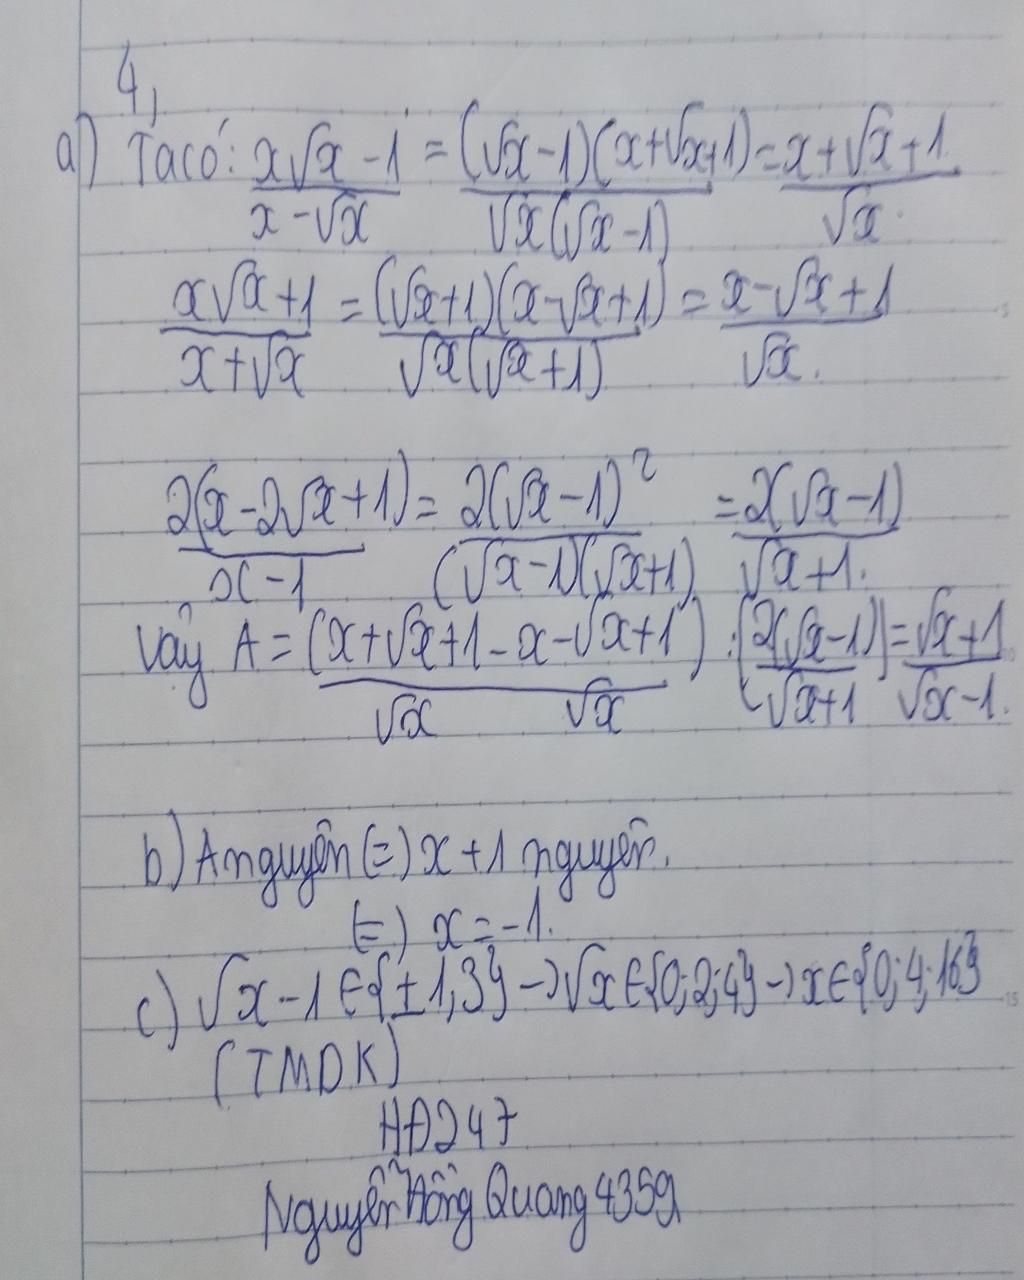 4,
a) Ta có: x√x - 1 / x - √x = (√x - 1)(x + √x + 1) / √x(√x - 1) = x + √x + 1 / √x.
x√x + 1 / x + √x = (√x + 1)(x - √x + 1) / √x(√x + 1) = x - √x + 1 / √x.
2(x - 2√x + 1) / x - 1 = 2(√x - 1)² / (√x - 1)(√x + 1) = 2(√x - 1) / √x + 1.
Vậy A = (x + √x + 1 / √x - x - √x + 1 / √x) : (2(√x - 1) / √x + 1) = √x + 1 / √x - 1.
b) A nguyên (=) x + 1 nguyên.
(=) x = -1.
c) √x - 1 ∈ {±1, 3} -> √x ∈ {0; 2; 4} -> x ∈ {0; 4; 16}
(TMDK)
HĐ247
Nguyễn Hồng Quang 4359